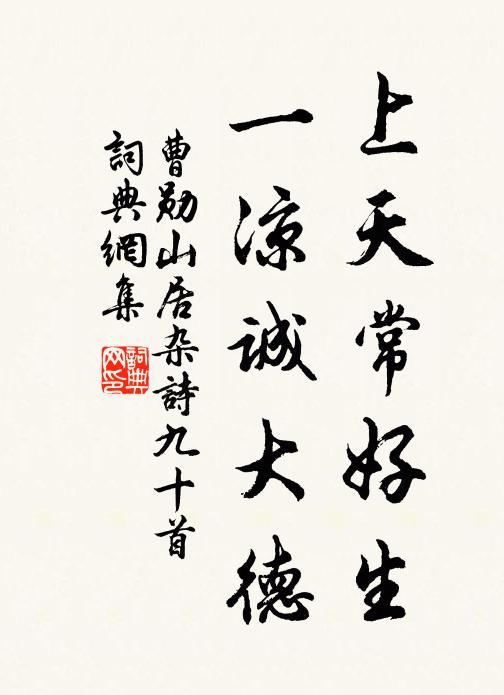 上天常好生
一凉誠大德
曹勛山居杂詩九十首
詞典網集
詞典網印